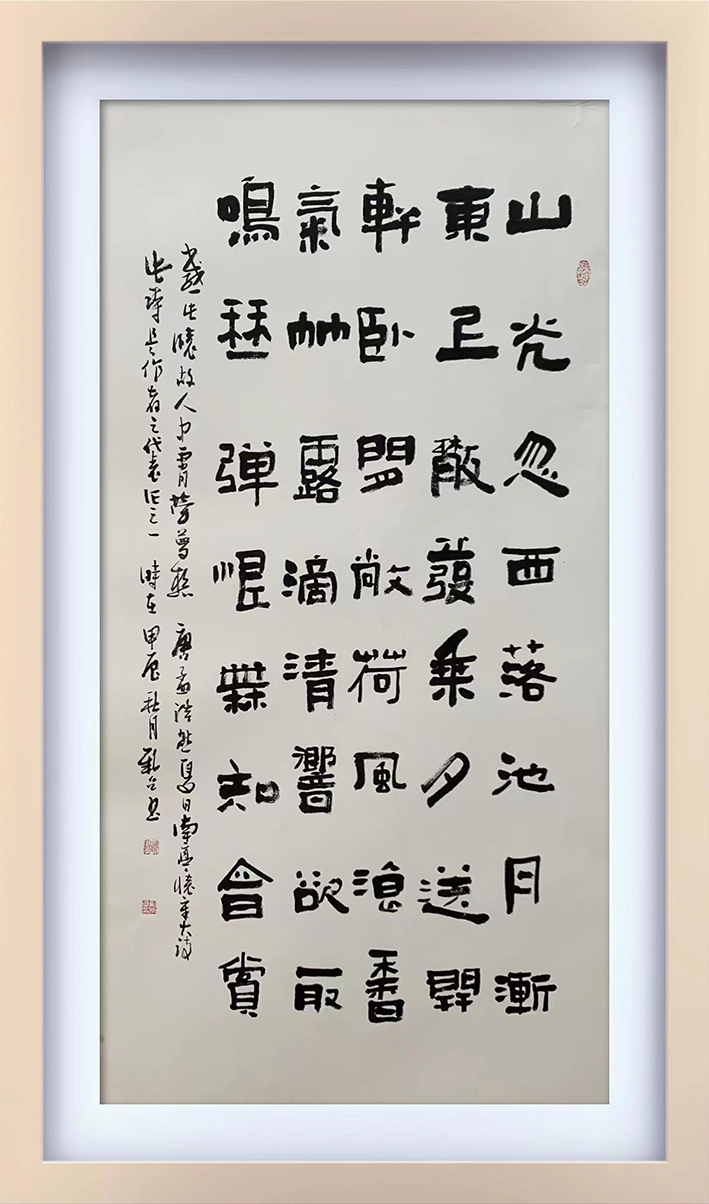 山光忽西落池月漸
東上散發乘夕送開
軒卧閒敞荷風涼香
氣竹露滴清響欲取
鳴琴弹恨無知會賞
感此懷故人中宵勞夢想 唐孟浩然夏日南亭懷辛大詩
此詩是作者之代表作之一 時在甲辰秋月